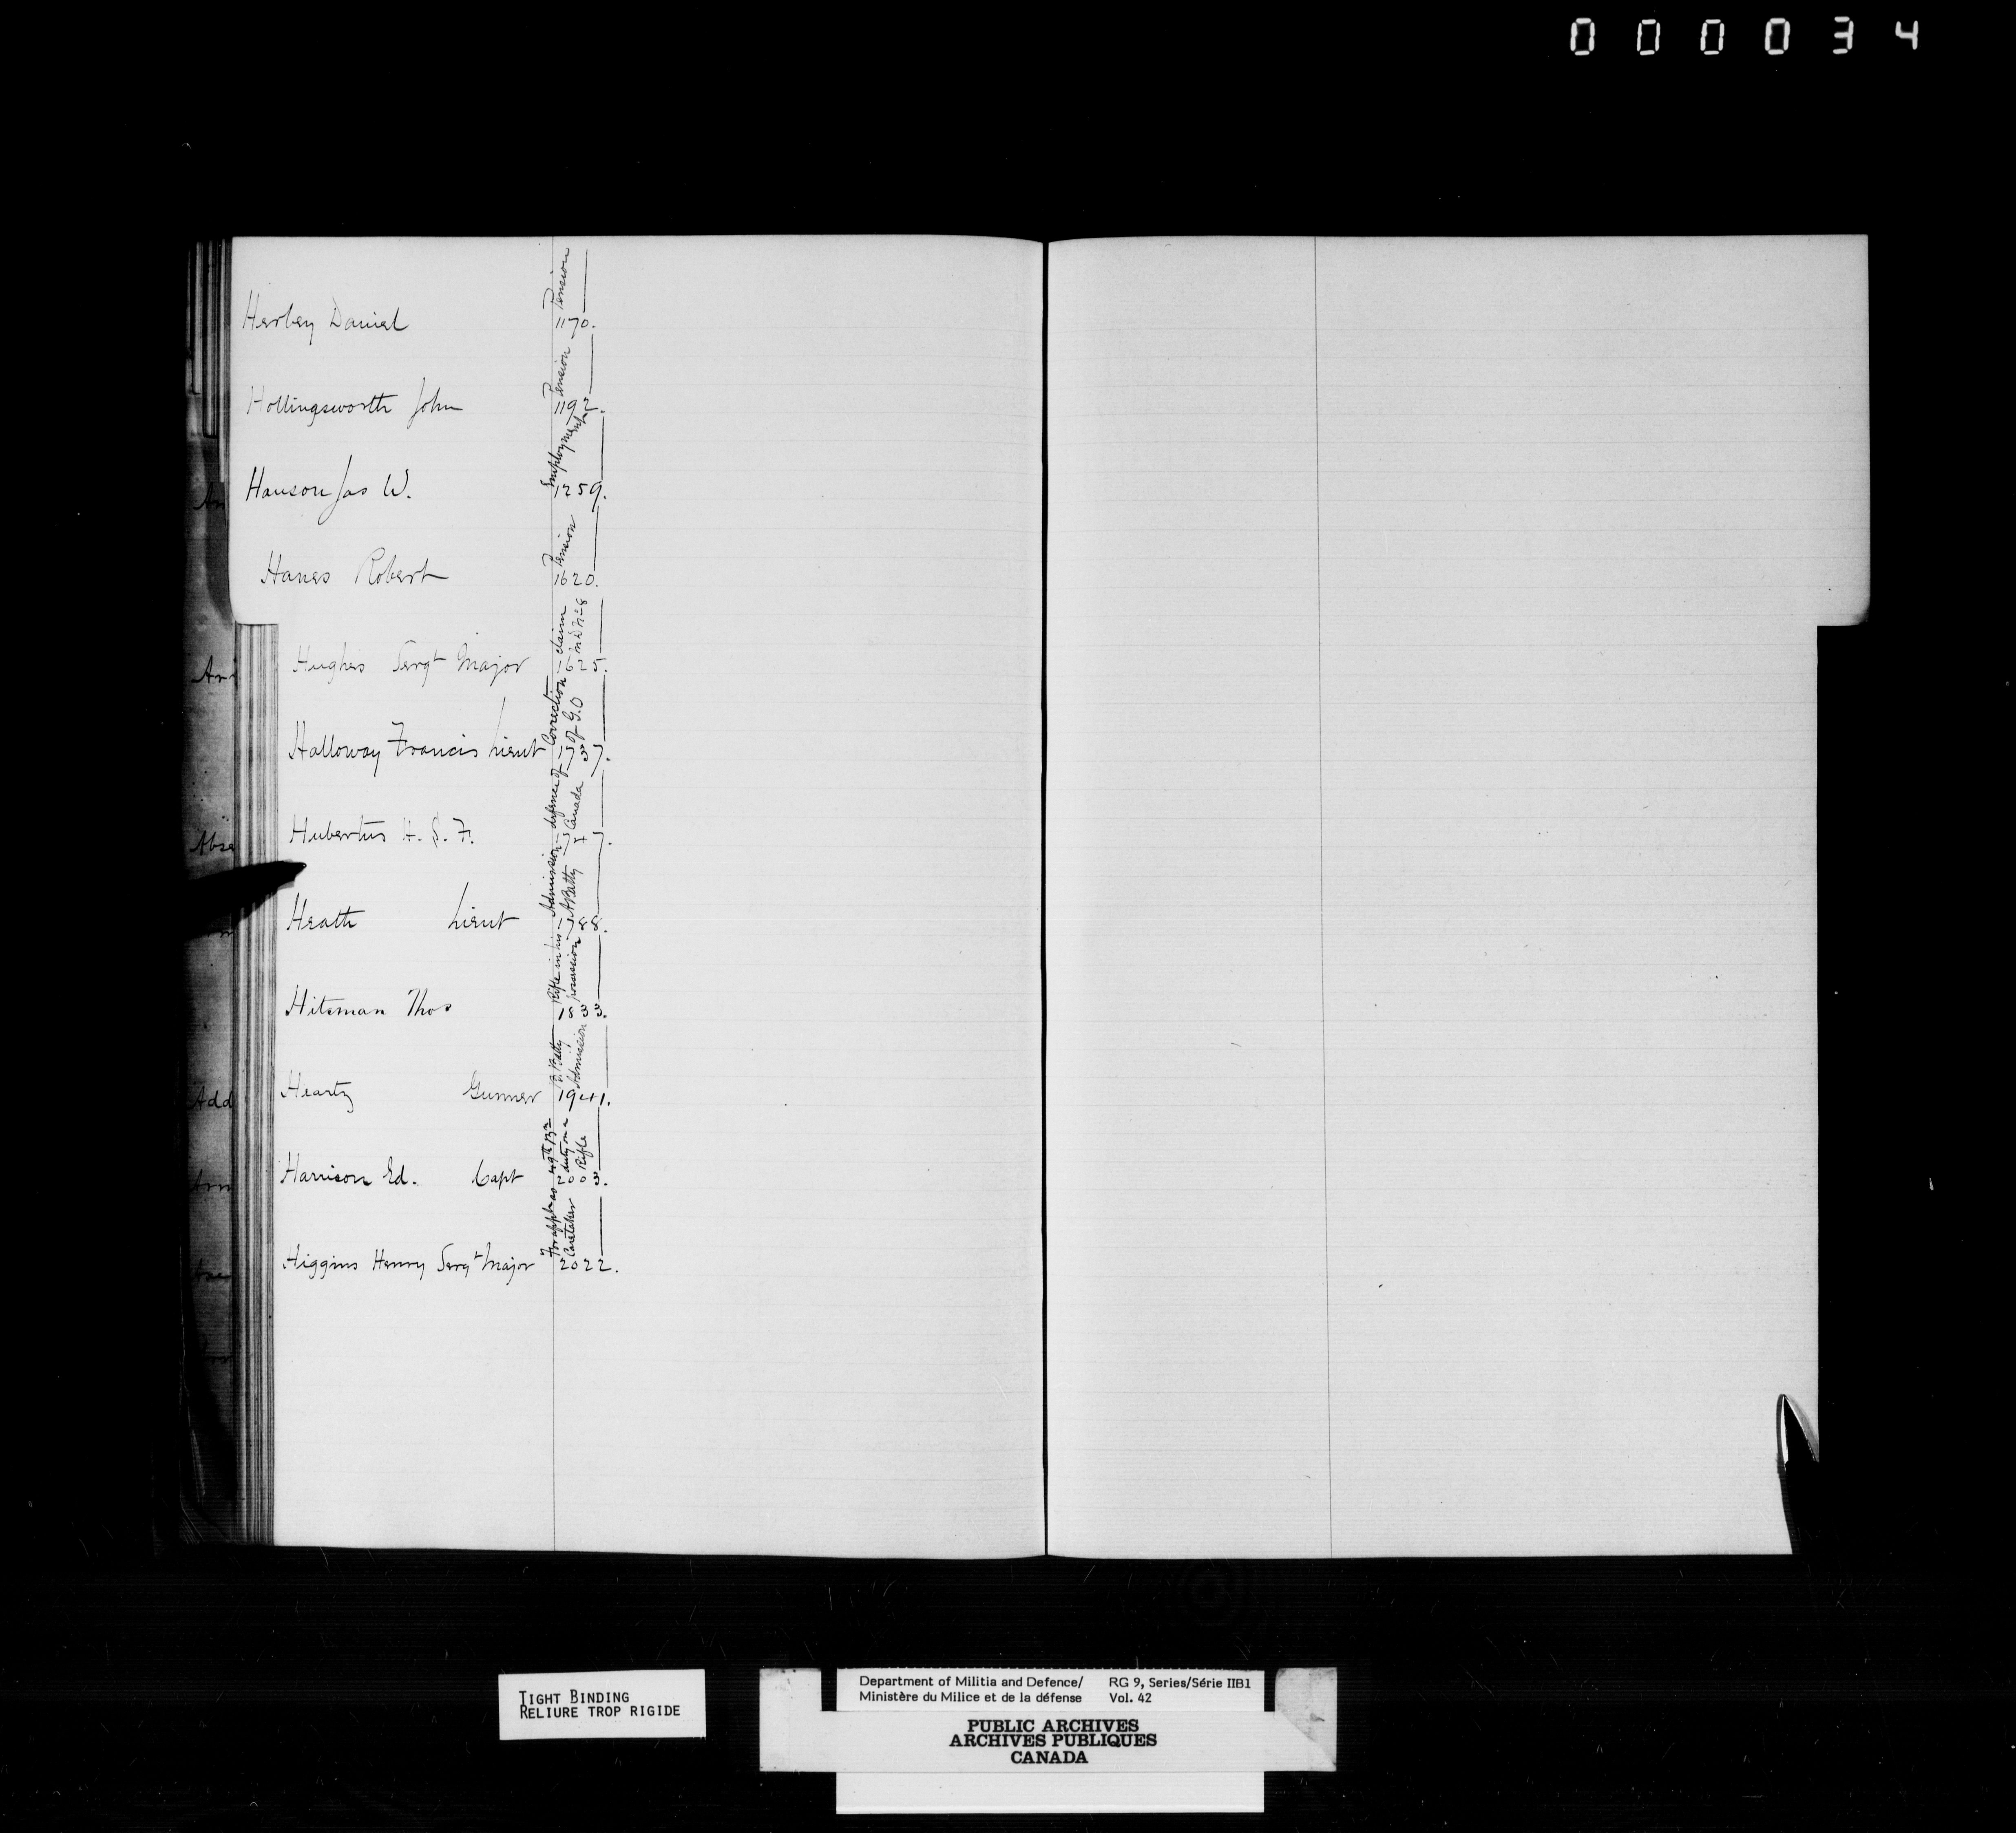 000034
Pension
Herbey Daniel 1170.
Pension
Hollingsworth John 1192.
Employment
Hanson Jas W. 1259.
Pension
Hanes Robert 1620.
claim
M D No 8
Hughes Sergt Major 1625.
Correction
of G.O
Halloway Francis Lieut 1737.
defence of
Canada
Hubertus H. S. F.
Admission
A Batty
Heath Lieut 1788.
Rifle in his
possession
Hitsman Thos 1833.
B. Batty
Admission
Heartz Gunner 1941.
duty on a
Rifle
Harrison Ed. Capt 2003.
For appt as
Caretaker
Higgins Henry Sergt Major 2022.
An
Abse
Add
Arm
TIGHT BINDING
RELIURE TROP RIGIDE
Department of Militia and Defence/ RG 9, Series/Série IIB1
Ministère du Milice et de la défense Vol. 42
PUBLIC ARCHIVES
ARCHIVES PUBLIQUES
CANADA